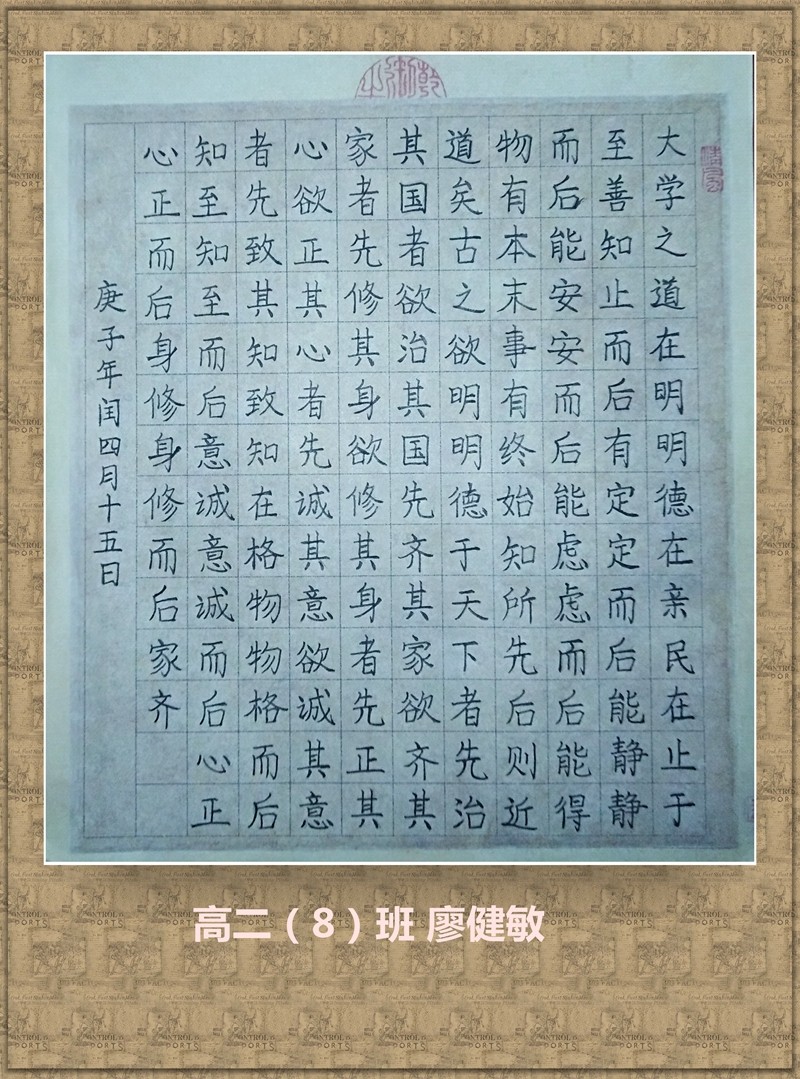 大学之道在明明德在亲民在止于
至善知止而后有定定而后能静静
而后能安安而后能虑虑而后能得
物有本末事有终始知所先后则近
道矣古之欲明明德于天下者先治
其国者欲治其国先齐其家欲齐其
家者先修其身欲修其身者先正其
心欲正其心者先诚其意欲诚其意
者先致其知致知在格物物格而后
知至知至而后意诚意诚而后心正
心正而后身修身修而后家齐
庚子年闰四月十五日
高二（8）班 廖健敏